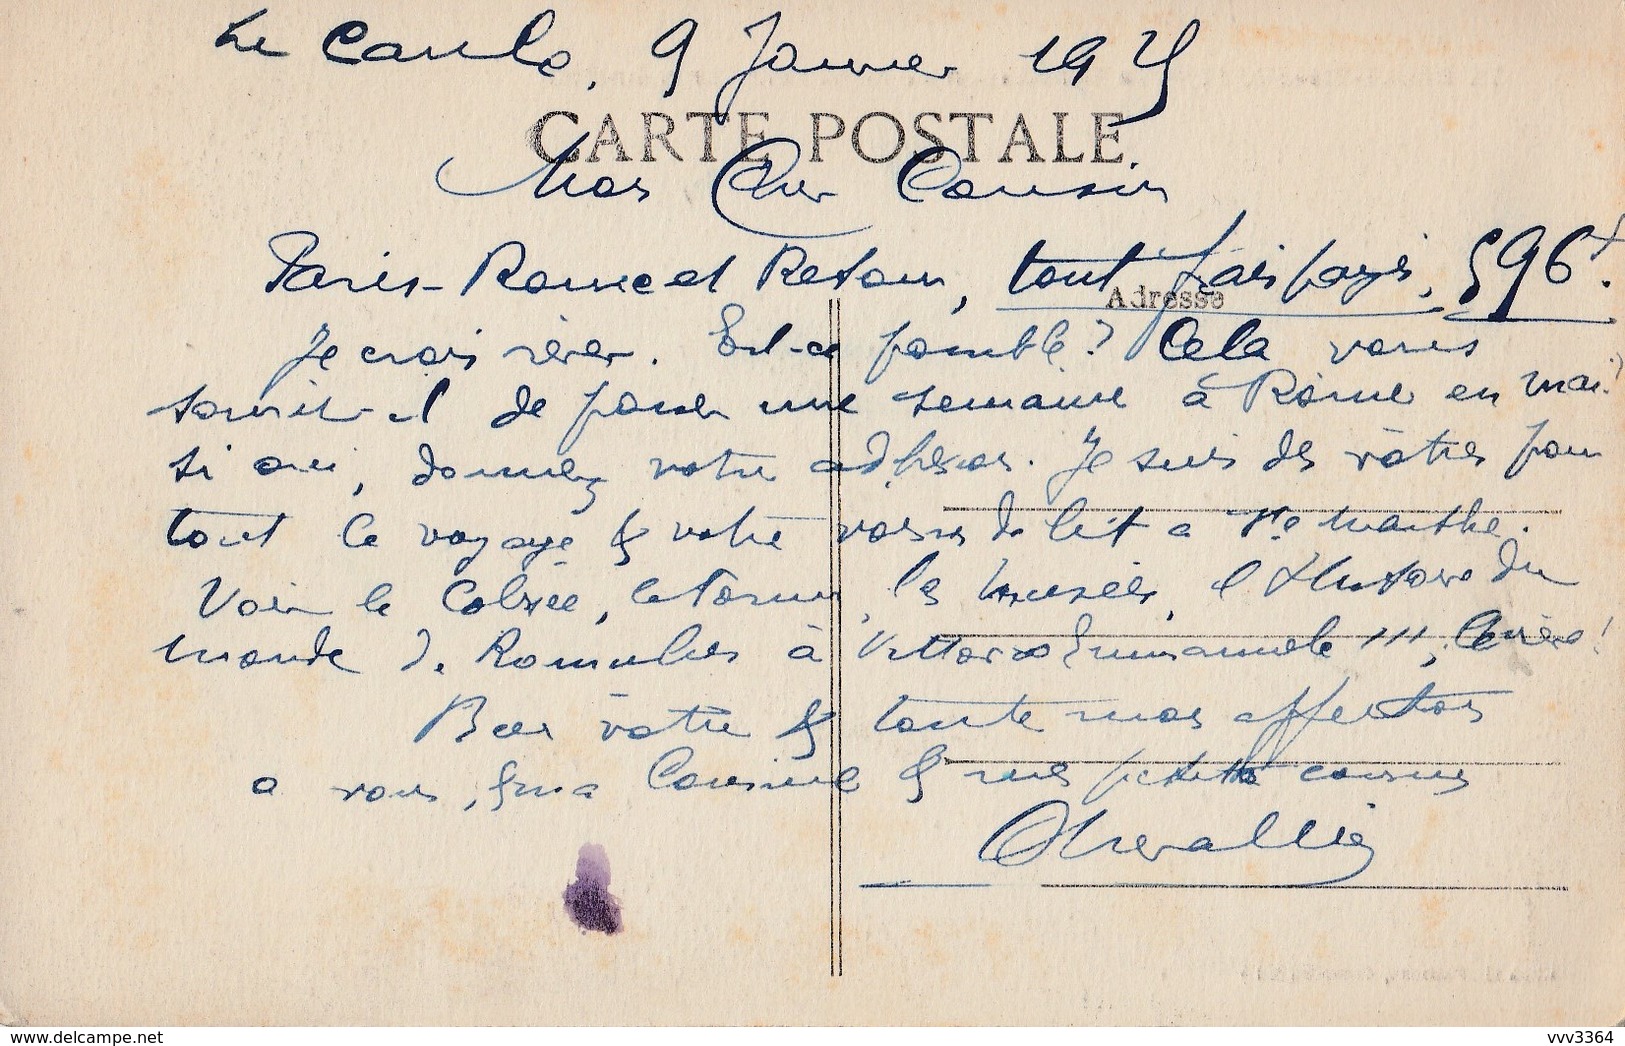 Le Caule, 9 Janvier 1925
CARTE POSTALE
Mon Cher Cousin
Paris-Rome et Retour, tout frais payés, 596 f.
Adresse
Je crois rêver. Est-ce possible? Cela vous
sourit-il de passer une semaine à Rome en mai?
si oui, donnez votre adhésion. Je suis des vôtres pour
tout le voyage & votre voisin de lit a Ste Marthe.
Voir le Colisée, le Forum, les musées, l'Histoire du
monde de Romulus à Vittorio Emmanuele III,
Bien vôtre & toute mon affection
a vous, & ma Cousine & mes petits cousins
Chevallier
vvv3364
delcampe.net